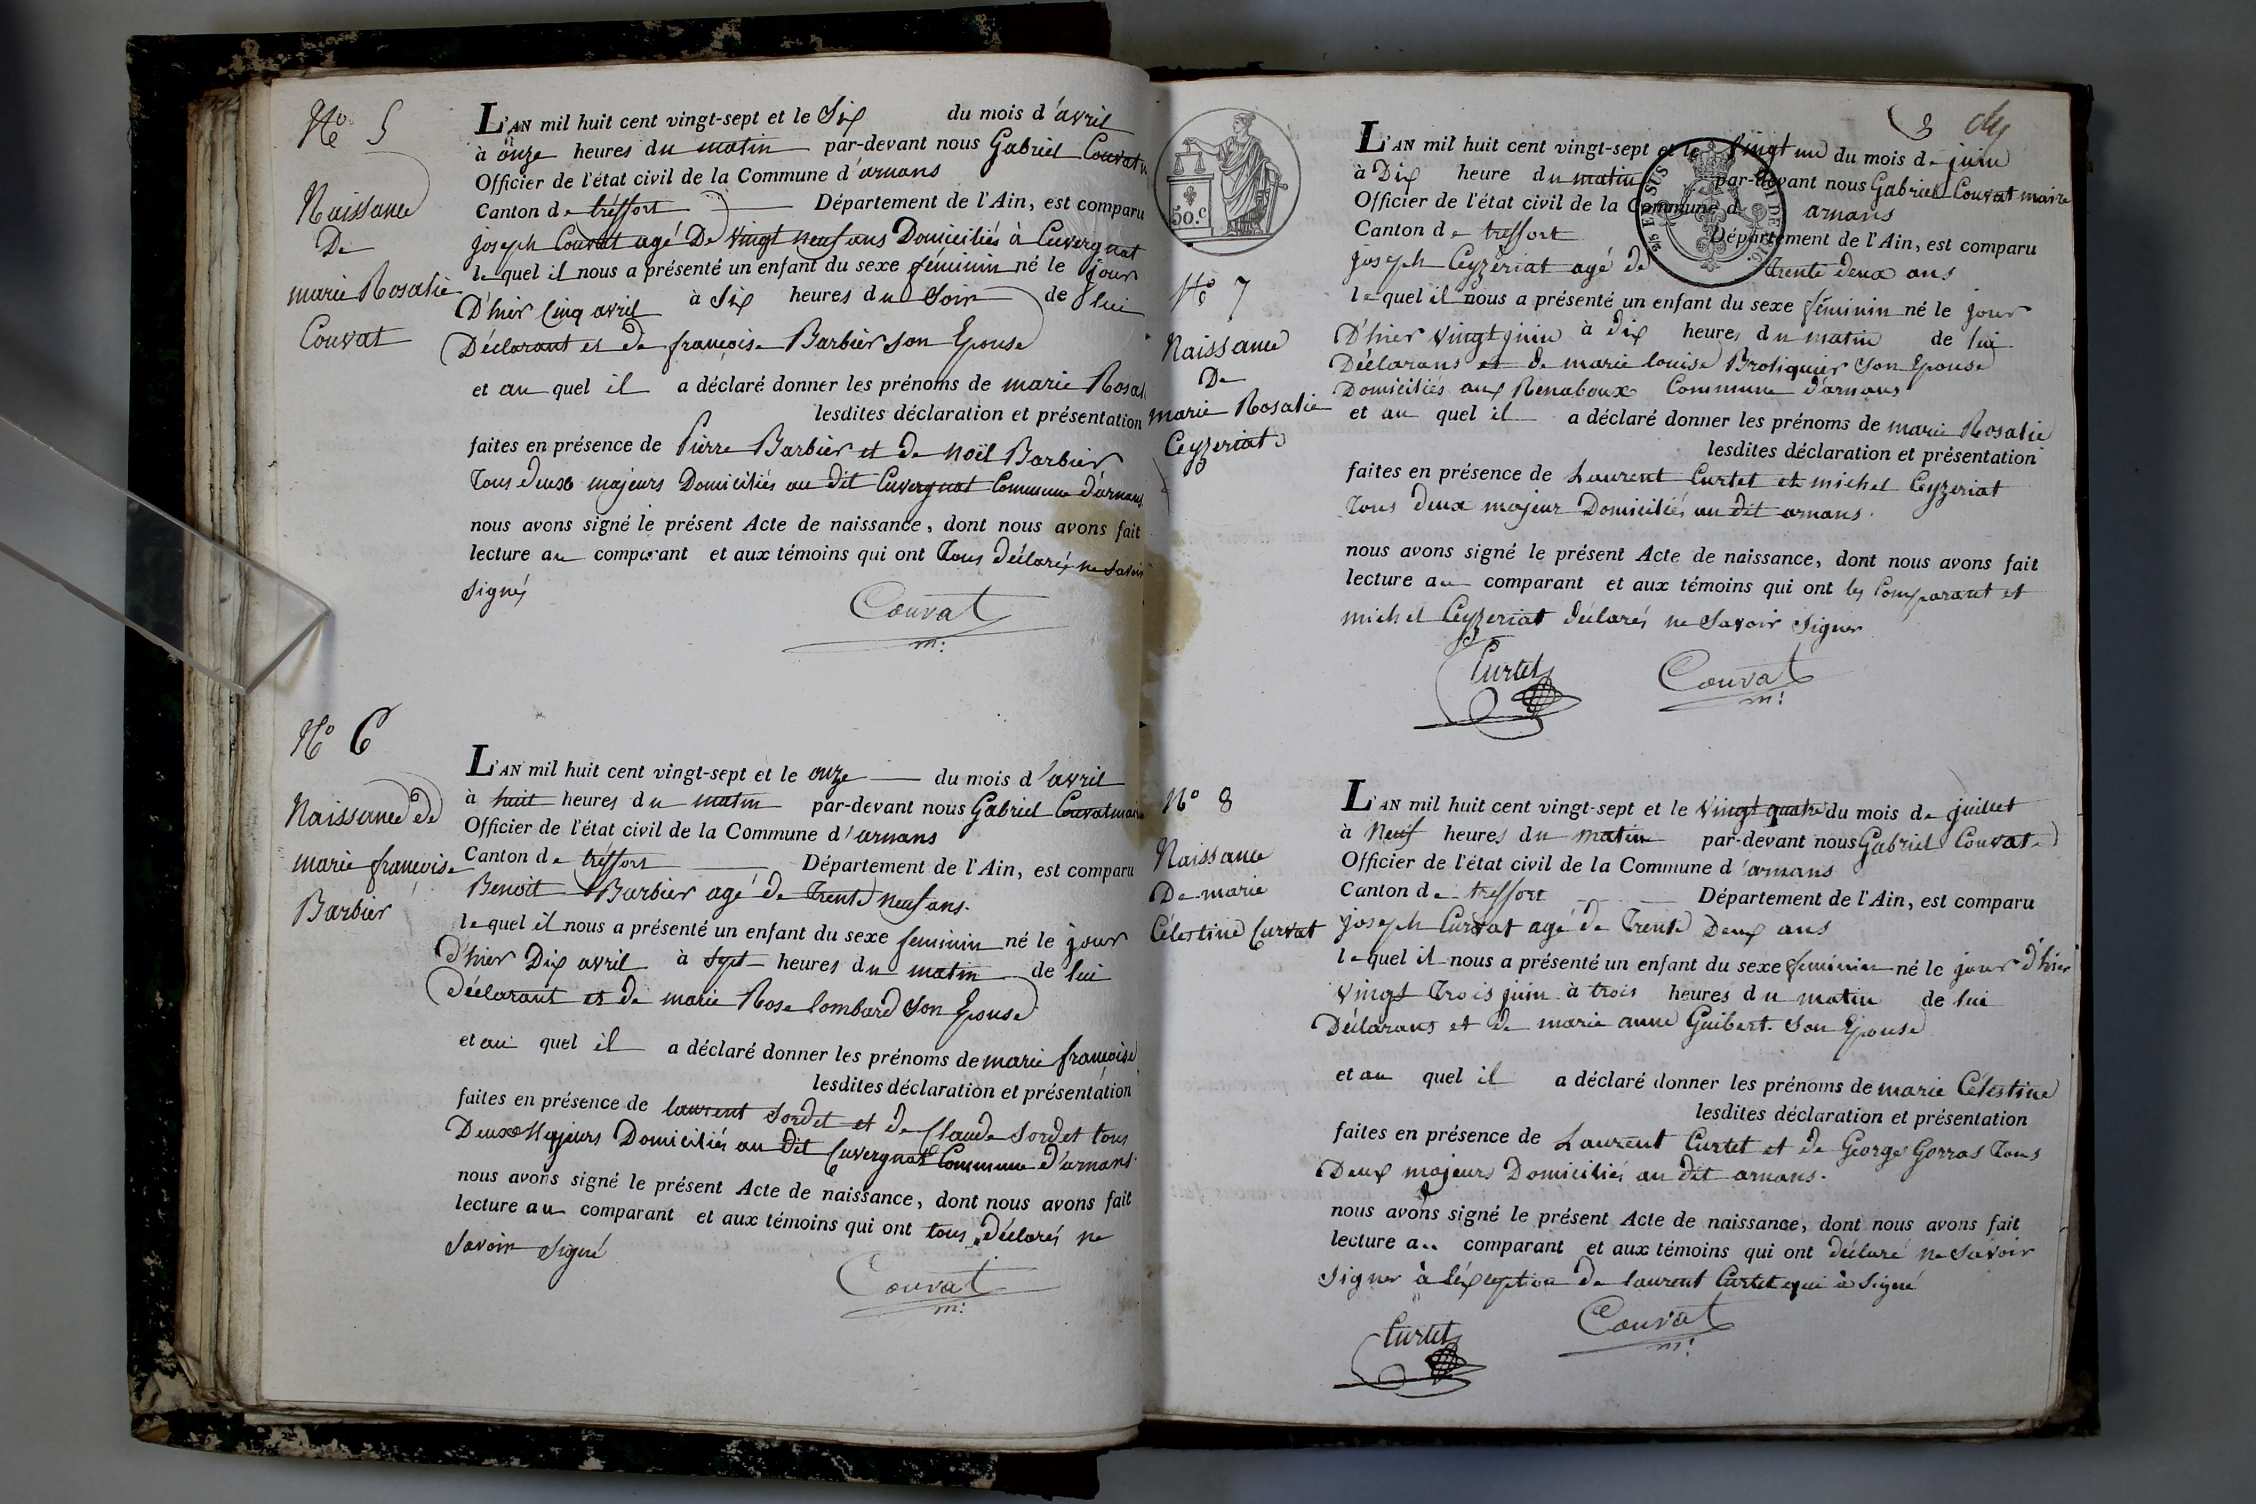 No 5
Naissance
De
marie Rosalie
Couvat
L'AN mil huit cent vingt-sept et le Six du mois d'avril
à onze heures du matin par-devant nous Gabriel Couvat
Officier de l'état civil de la Commune d'arnans
Canton de tréffort Département de l'Ain, est comparu
joseph Couvat agé De vingt neuf ans Domiciliés à Cuvergnat
lequel il nous a présenté un enfant du sexe féminin né le jour
D'hier Cinq avril à Six heures du Soir de lui
Déclarant et de françoise Barbier son Epouse
et au quel il a déclaré donner les prénoms de marie Rosal
lesdites déclaration et présentation
faites en présence de Pierre Barbier et de noël Barbier
Tous deux majeurs Domiciliés au dit Cuvergnat Commune d'arnans
nous avons signé le présent Acte de naissance, dont nous avons fait
lecture au comparant et aux témoins qui ont Tous déclarés ne Savoir
Signés
Couvat
m:
No 6
Naissance de
marie françoise
Barbier
L'AN mil huit cent vingt-sept et le onze du mois d'avril
à huit heures du matin par-devant nous Gabriel Couvat maire
Officier de l'état civil de la Commune d'arnans
Canton de tréffort Département de l'Ain, est comparu
Benoit Barbier agé de Trente neuf ans.
lequel il nous a présenté un enfant du sexe feminin né le jour
D'hier Dix avril à Sept heures du matin de lui
Déclarant et de marie Rose lombard Son Epouse
et au quel il a déclaré donner les prénoms de marie françoise
lesdites déclaration et présentation
faites en présence de laurent Sordet et de Claude Sordet tous
Deux Majeurs Domiciliés au dit Cuvergnat Commune d'arnans.
nous avons signé le présent Acte de naissance, dont nous avons fait
lecture au comparant et aux témoins qui ont tous déclarés ne
Savoir Signé
Couvat
m:
3
50.c
No 7
Naissance
De
marie Rosalie
Ceyzeriat
L'AN mil huit cent vingt-sept et le Vingt un du mois de juin
à Dix heure du matin par-devant nous Gabriel Couvat maire
Officier de l'état civil de la Commune d arnans
Canton de treffort Département de l'Ain, est comparu
joseph Ceyzériat agé de Trente deux ans
lequel il nous a présenté un enfant du sexe féminin né le jour
D'hier vingt juin à dix heures du matin de lui
Déclarans et de marie louise Brotiquier Son Epouse
Domiciliés aux Renaboux Commune d'arnans
et au quel il a déclaré donner les prénoms de marie Rosalie
lesdites déclaration et présentation
faites en présence de Laurent Curtet et michel Ceyzeriat
Tous deux majeur Domiciliés au dit arnans.
nous avons signé le présent Acte de naissance, dont nous avons fait
lecture au comparant et aux témoins qui ont les Comparant et
michel Ceyzeriat déclarés ne Savoir Signer
Curtet
Couvat
m:
No 8
Naissance
De marie
Célestine Curvat
L'AN mil huit cent vingt-sept et le vingt quatre du mois de juillet
à Neuf heures du matin par-devant nous Gabriel Couvat
Officier de l'état civil de la Commune d'arnans
Canton de treffort Département de l'Ain, est comparu
joseph Curvat agé de Trente Deux ans
lequel il nous a présenté un enfant du sexe feminin né le jour d'hier
vingt Trois juin à trois heures du matin de lui
Déclarans et de marie anne Guibert Son Epouse
et au quel il a déclaré donner les prénoms de marie Célestine
lesdites déclaration et présentation
faites en présence de Laurent Curtet et de George Gorras Tous
Deux majeurs Domiciliés au dit arnans.
nous avons signé le présent Acte de naissance, dont nous avons fait
lecture a.. comparant et aux témoins qui ont déclaré ne Savoir
Signer à l'exception de laurent Curtet qui à Signé
Curtet
Couvat
m: